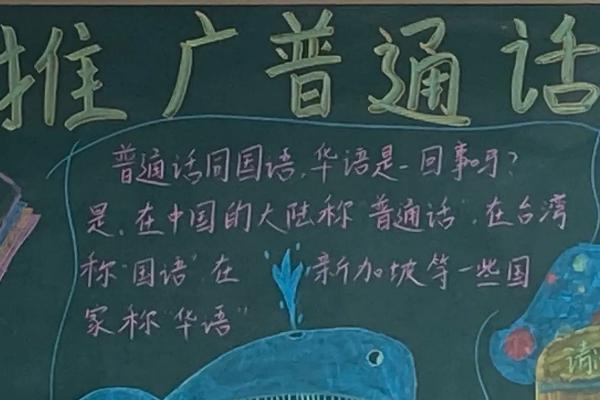 推广普通话
普通话同国语,华语是一回事吗?
是,在中国的大陆称"普通话",在台湾
称"国语"在 新加坡等一些国
家称"华语"
请